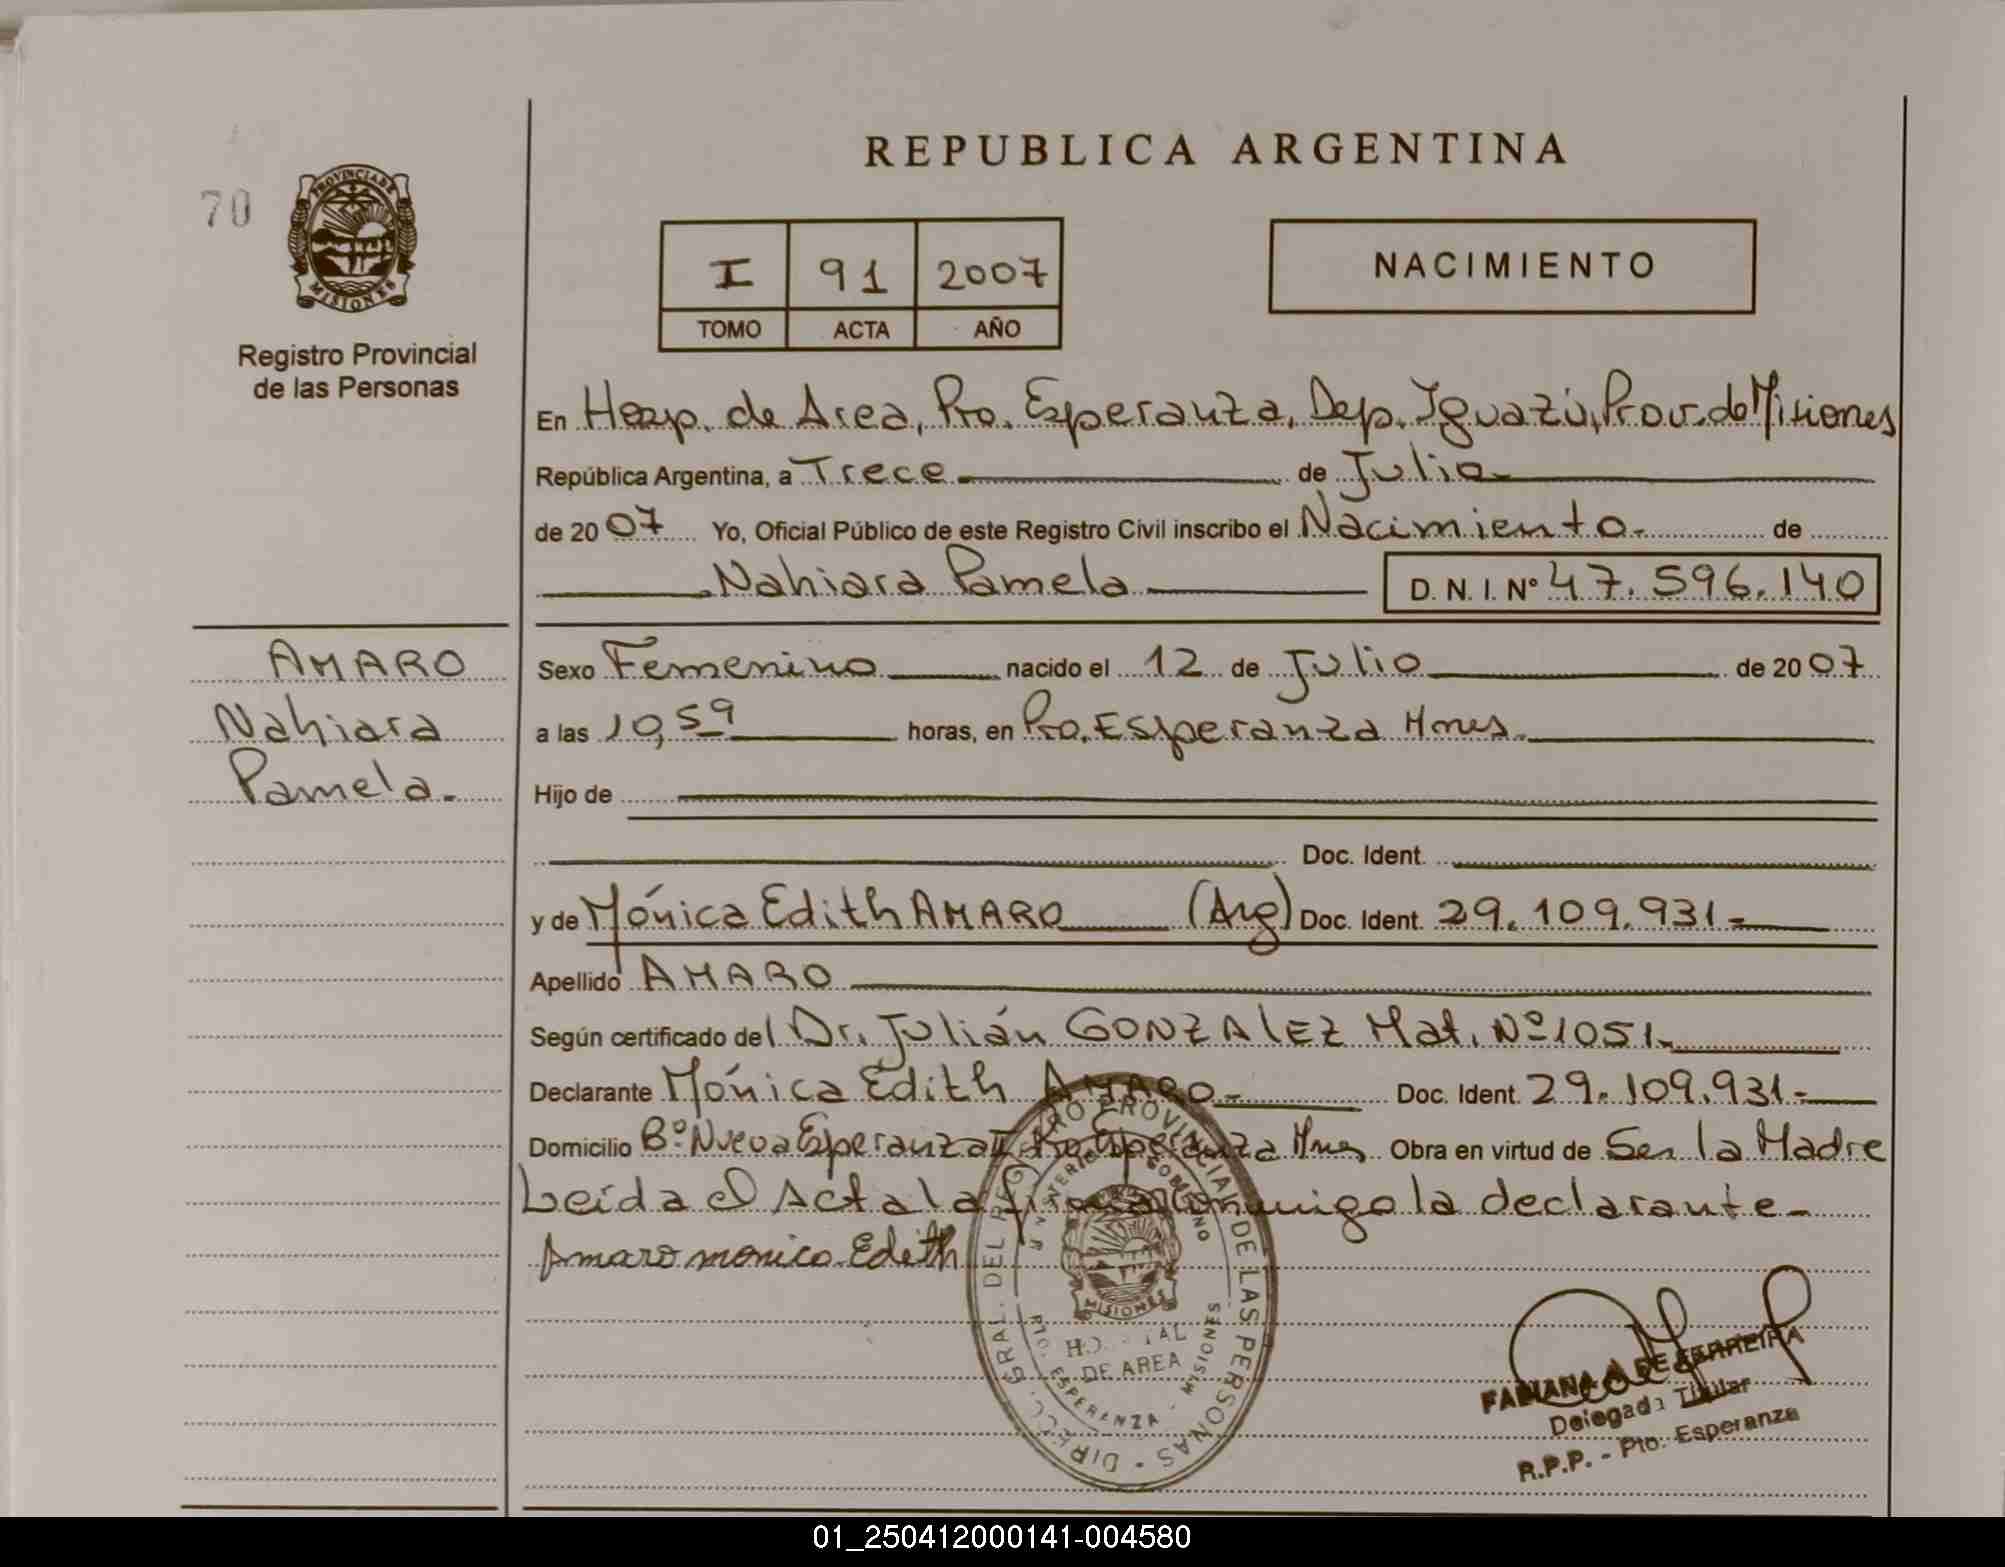 REPUBLICA ARGENTINA
70
PROVINCIA DE
MISIONES
Registro Provincial
de las Personas
I 91 2007
TOMO ACTA AÑO
NACIMIENTO
En Hosp. de Area, Pto. Esperanza, Dep. Iguazú, Prov. de Misiones
República Argentina, a Trece de Julio
de 2007 Yo, Oficial Público de este Registro Civil inscribo el Nacimiento de
Nahiara Pamela D. N. I. Nº 47.596.140
AMARO
Nahiara
Pamela.
Sexo Femenino nacido el 12 de Julio de 2007
a las 10,59 horas, en Pto. Esperanza Mnes.
Hijo de
Doc. Ident.
y de Mónica Edith AMARO (Arg) Doc. Ident. 29.109.931-
Apellido AMARO
Según certificado del Dr. Julián GONZALEZ Mat. Nº 1051.
Declarante Mónica Edith AMARO- Doc. Ident. 29.109.931-
Domicilio Bº Nueva Esperanza II Pto Esperanza Mnes Obra en virtud de Ser la Madre
Leída el Acta la firma conmigo la declarante-
Amaro monica Edith
DIRECC. GRAL. DEL REGISTRO PROVINCIAL DE LAS PERSONAS
MINISTERIO DE GOBIERNO
MISIONES
HOSPITAL
DE AREA
ESPERANZA - MISIONES
FABIANA A. DE FERREIRA
Delegada Titular
R.P.P. - Pto. Esperanza
01_250412000141-004580